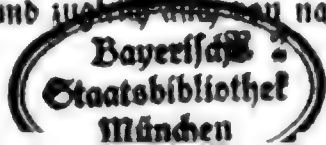 und
Bayerische
Staatsbibliothek
München